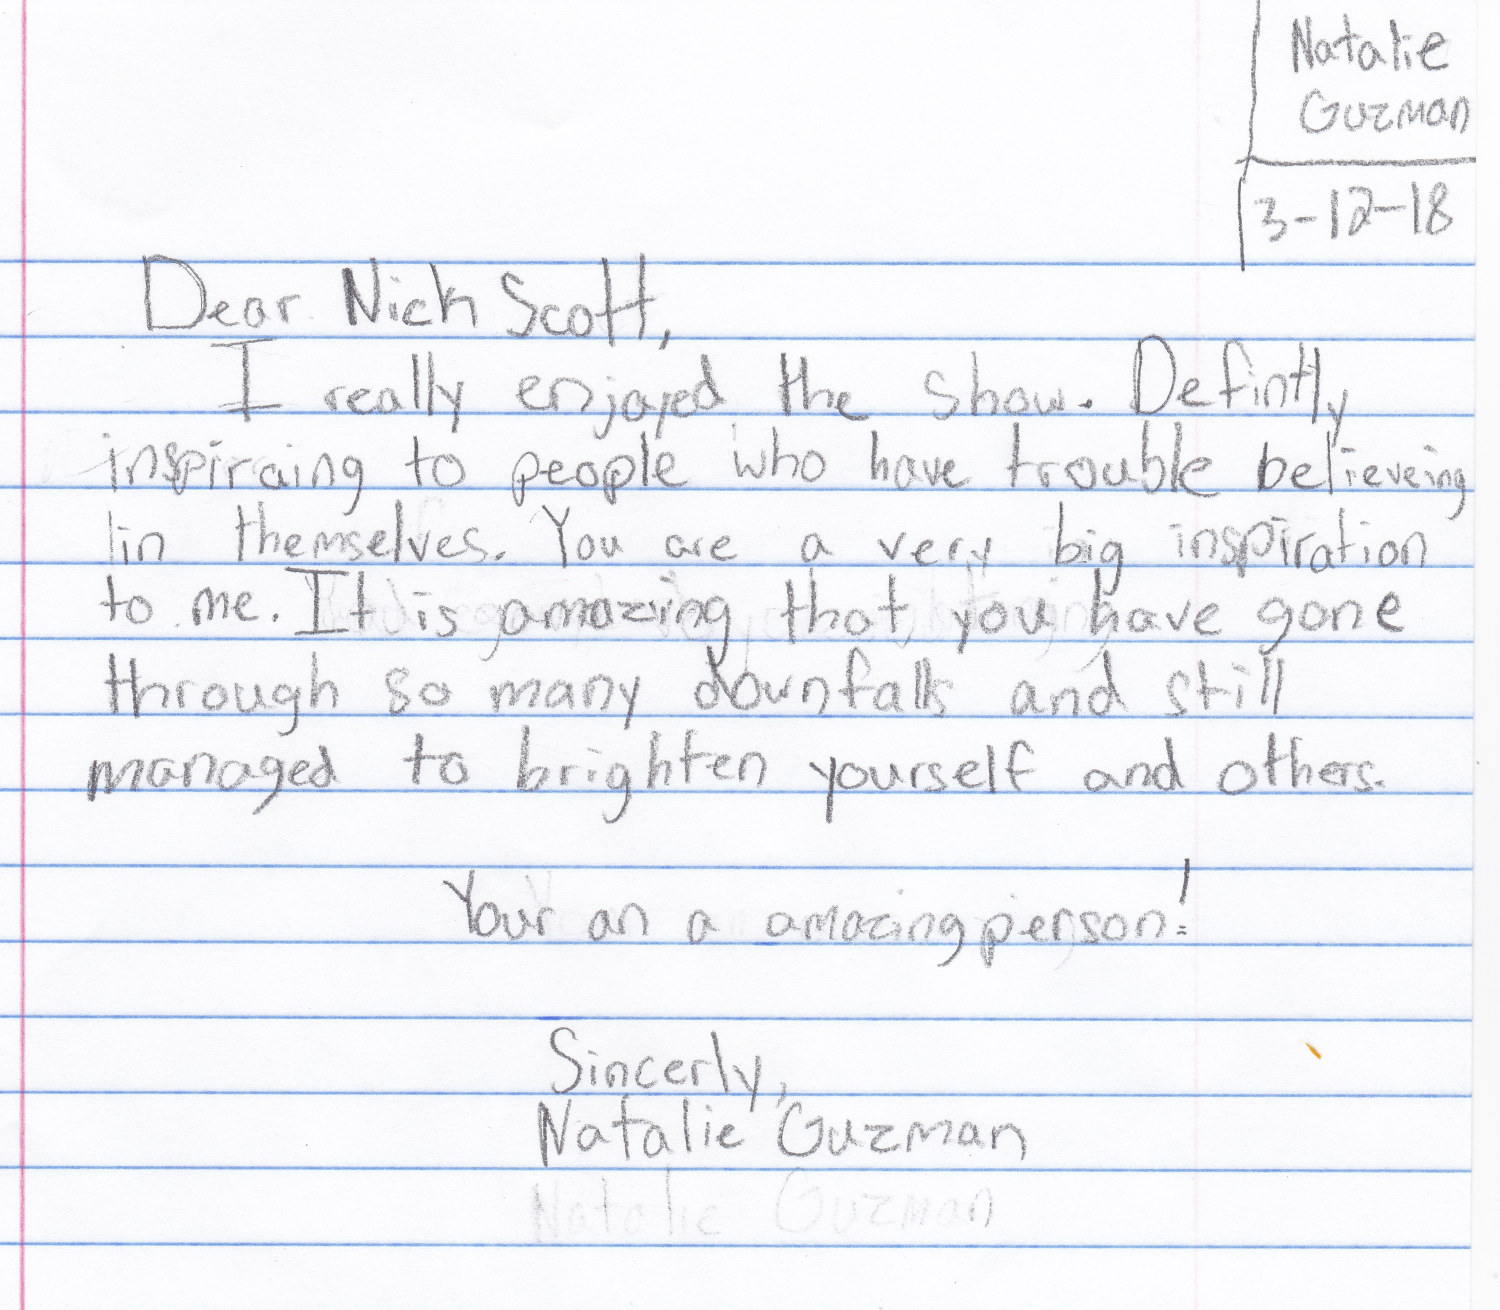 Natalie
Guzman
3-12-18
Dear Nick Scott,
I really enjoyed the show. Defintly
inspiraing to people who have trouble believeing
in themselves. You are a very big inspiration
to me. It is amazing that you have gone
through so many downfalls and still
managed to brighten yourself and others.
Your an a amazing person!
Sincerly,
Natalie Guzman
Natalie Guzman